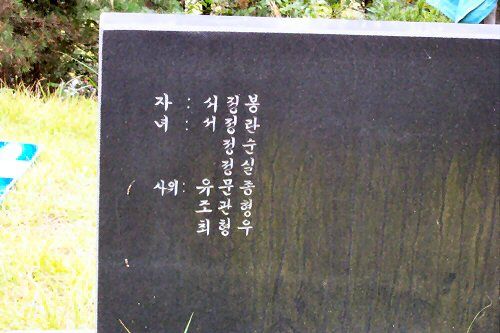 자 : 서정봉
녀 : 서정란
정순
정실
사위 : 유문종
조관형
최형우